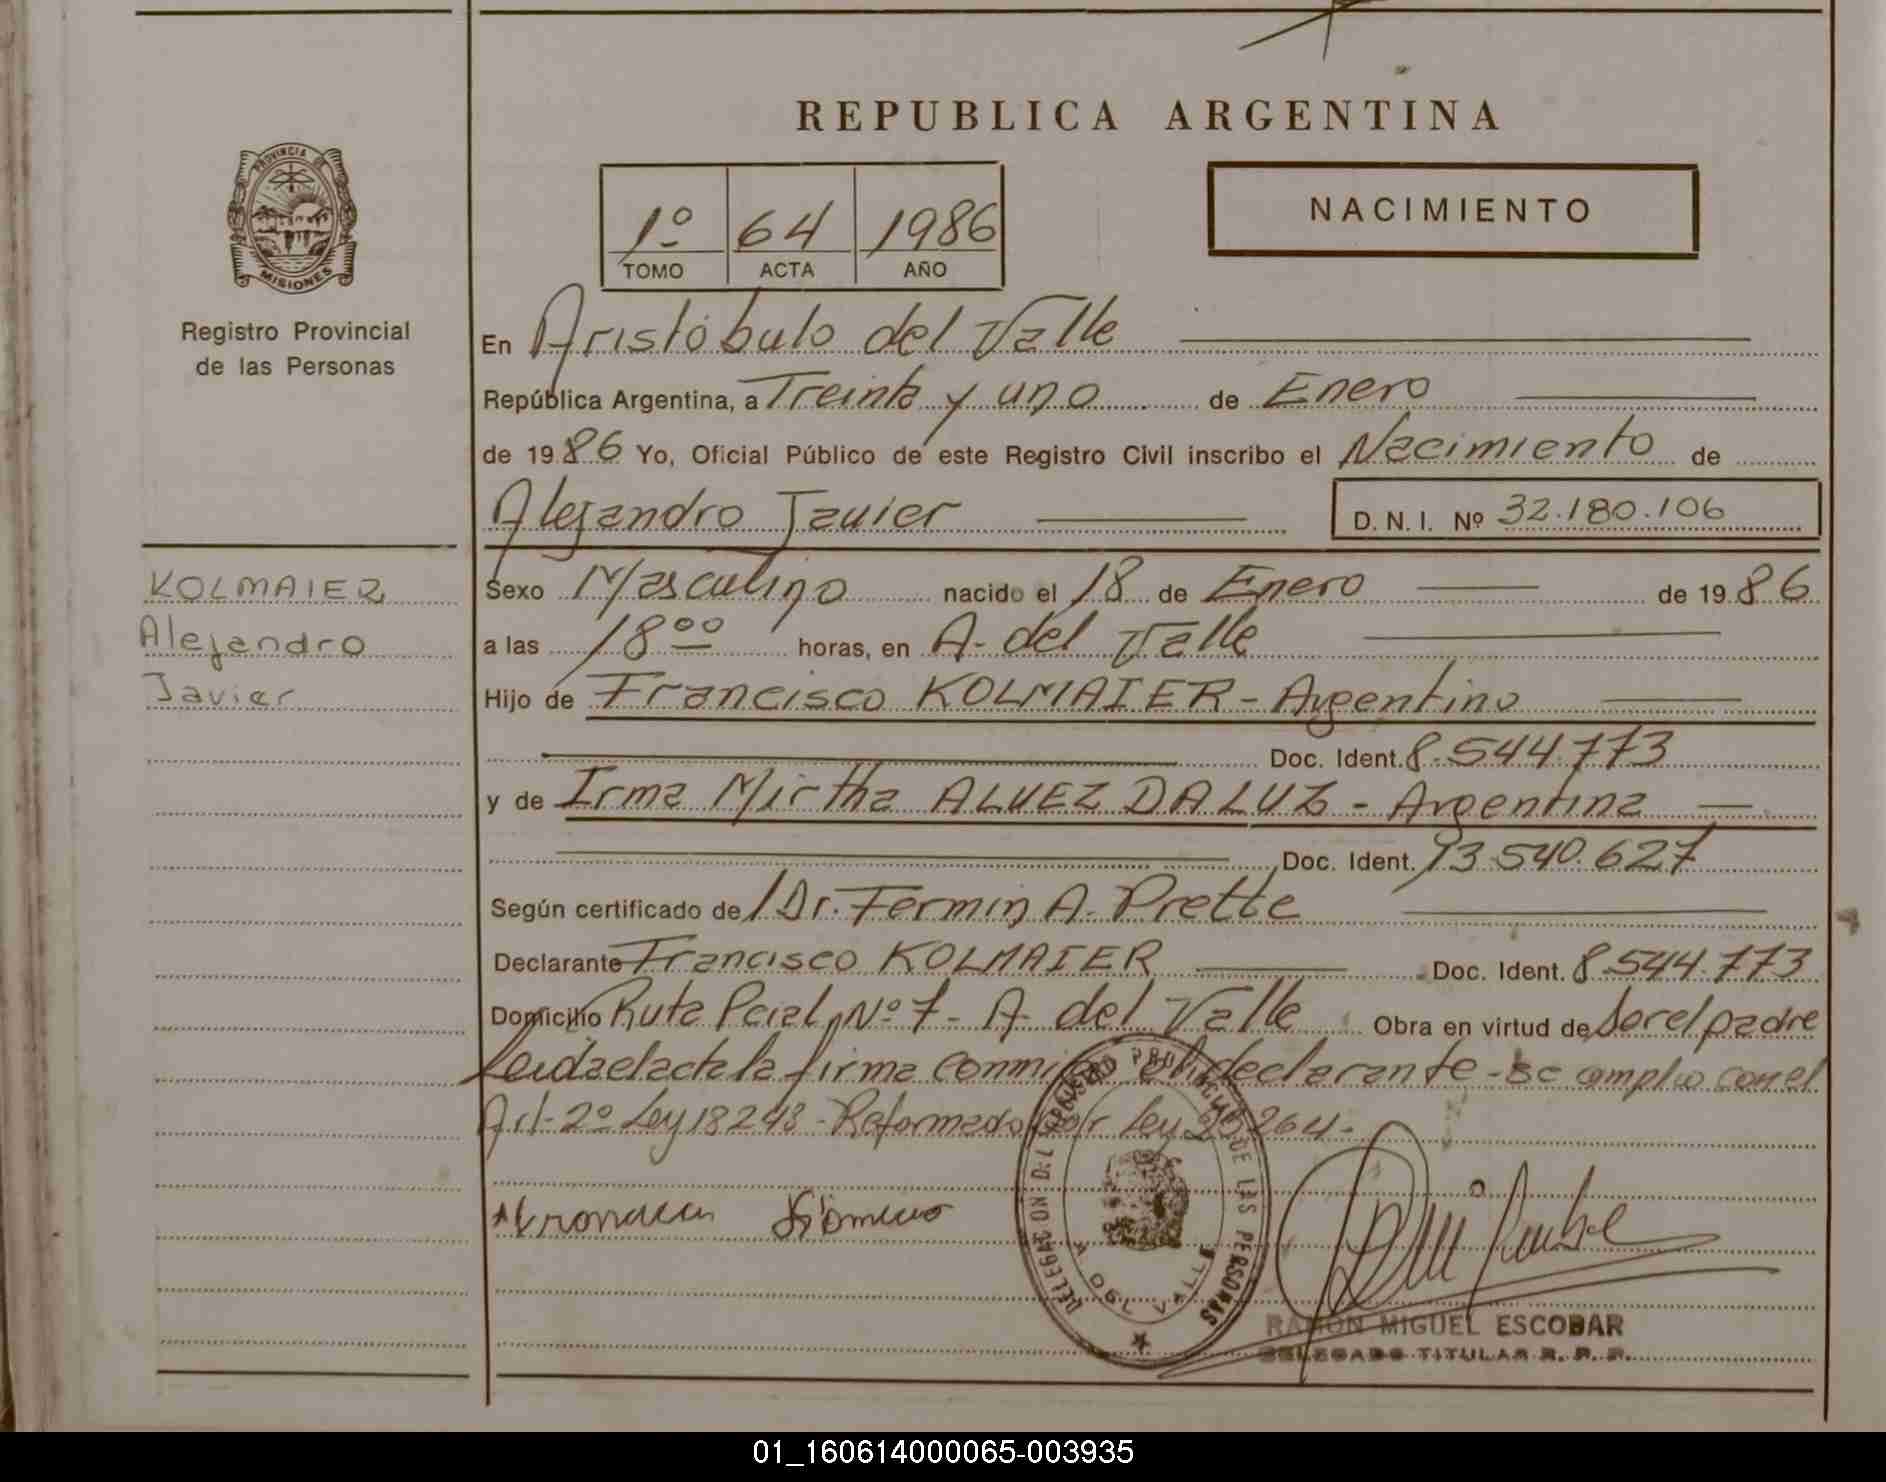 REPUBLICA ARGENTINA
PROVINCIA DE
MISIONES
Registro Provincial
de las Personas
1º 64 1986
TOMO ACTA AÑO
NACIMIENTO
En Aristóbulo del Valle
República Argentina, a Treinta y uno de Enero
de 1986 Yo, Oficial Público de este Registro Civil inscribo el Nacimiento de
Alejandro Javier D. N. I. Nº 32.180.106
KOLMAIER
Alejandro
Javier
Sexo Masculino nacido el 18 de Enero de 1986
a las 18 00 horas, en A. del Valle
Hijo de Francisco KOLMAIER - Argentino
Doc. Ident. 8.544.773
y de Irma Mirtha ALVEZ DA LUZ - Argentina
Doc. Ident. 13.540.627
Según certificado de Dr. Fermin A. Prette
Declarante Francisco KOLMAIER Doc. Ident. 8.544.773
Domicilio Ruta Pcial Nº 7 - A. del Valle Obra en virtud de ser el padre
Leida el acta la firma conmigo el declarante - Se cumplio con el
Art. 2º Ley 18248 - Reformado por Ley 23264 -
DELEGACION DEL REGISTRO PROVINCIAL DE LAS PERSONAS
A. DEL VALLE
RAMON MIGUEL ESCOBAR
DELEGADO TITULAR R. P. P.
01_160614000065-003935